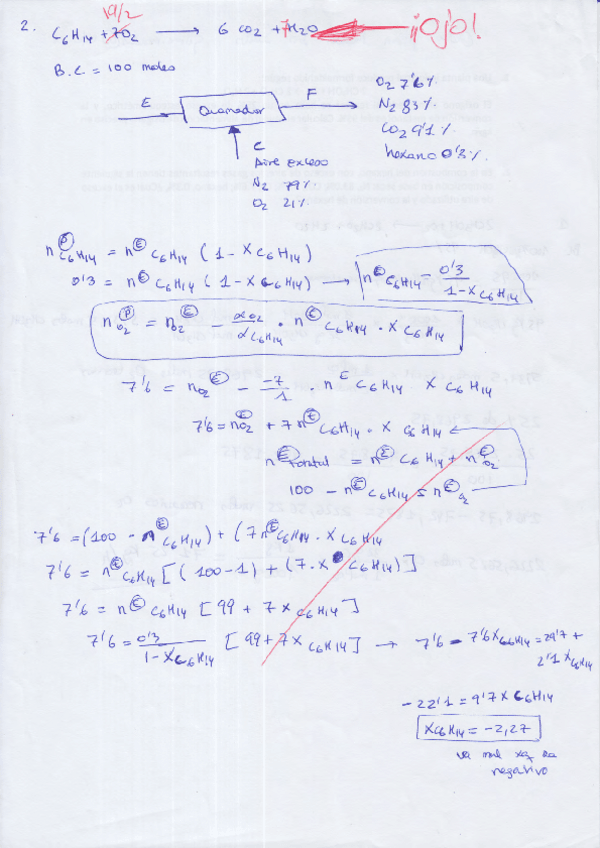 19/2
2. C6H14 + 7O2 → 6 CO2 + 7H2O ¡¡Ojo!
B.C = 100 moles
E Quemador F
O2 7'6%
N2 83%
CO2 9'1%
hexano 0'3%
C
Aire exceso
N2 79%
O2 21%
n(P) C6H14 = n(E) C6H14 (1 - X C6H14)
0'3 = n(E) C6H14 (1 - X C6H14) → n(E) C6H14 = 0'3 / 1 - X C6H14
n(P) O2 = n(E) O2 - αO2 / αC6H14 · n(E) C6H14 · X C6H14
7'6 = nO2(E) - -7/1 · n E C6H14 X C6H14
7'6 = nO2(E) + 7 n(E) C6H14 · X C6H14
n(E) = n(E) C6H14 + n(E) O2
100 - n(E) C6H14 = n(E) O2
7'6 = (100 - n(E) C6H14) + (7 n(E) C6H14 · X C6H14
7'6 = n(E) C6H14 [(100 - 1) + (7 · X C6H14)]
7'6 = n(E) C6H14 [99 + 7 X C6H14]
7'6 = 0'3 / 1 - X C6H14 [99 + 7 X C6H14] → 7'6 - 7'6 X C6H14 = 29'7 +
2'1 X C6H14
- 22'1 = 9'7 X C6H14
X C6H14 = -2,27
va mal xq da
negativo